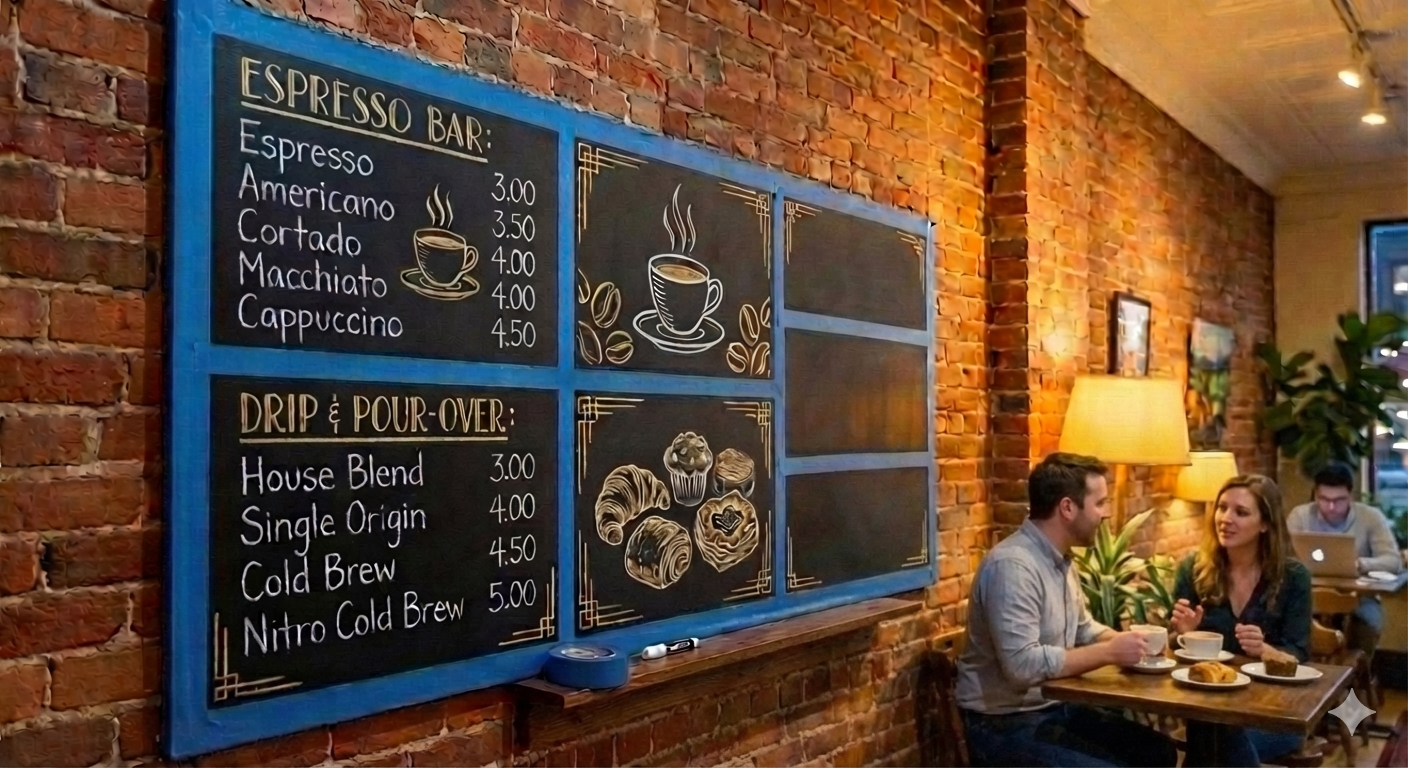 ESPRESSO BAR:
Espresso 3.00
Americano 3.50
Cortado 4.00
Macchiato 4.00
Cappuccino 4.50
DRIP & POUR-OVER:
House Blend 3.00
Single Origin 4.00
Cold Brew 4.50
Nitro Cold Brew 5.00